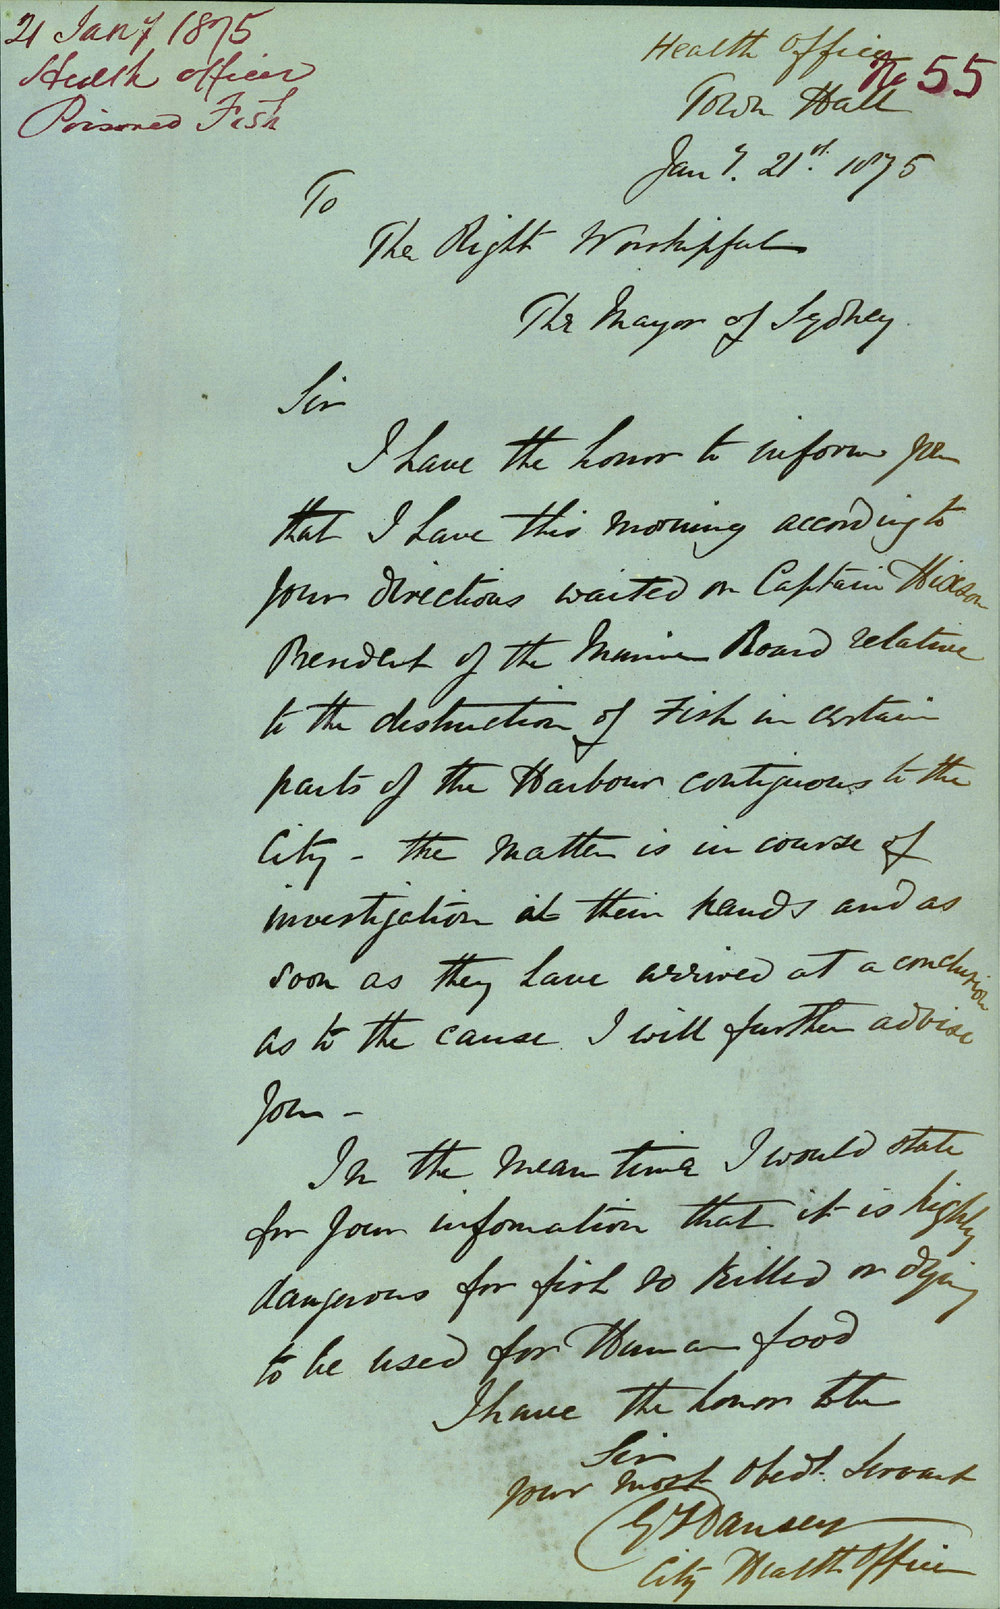 21 Jany 1875
Health officer
Poisoned Fish
No 55
Health Office
Town Hall
Jany. 21st. 1875
To
The Right Worshipful
The Mayor of Sydney
Sir
I have the honor to inform you
that I have this morning according to
your directions waited on Captain Hixson
President of the Marine Board relative
to the destruction of Fish in certain
parts of the Harbour contiguous to the
City - the matter is in course of
investigation at their hands and as
soon as they have arrived at a conclusion
as to the cause I will further advise
you -
In the mean time I would state
for your information that it is highly
dangerous for fish so killed or dying
to be used for Human food
I have the honor to be
Sir
your most Obedt. Servant
G F Dansey
City Health Officer